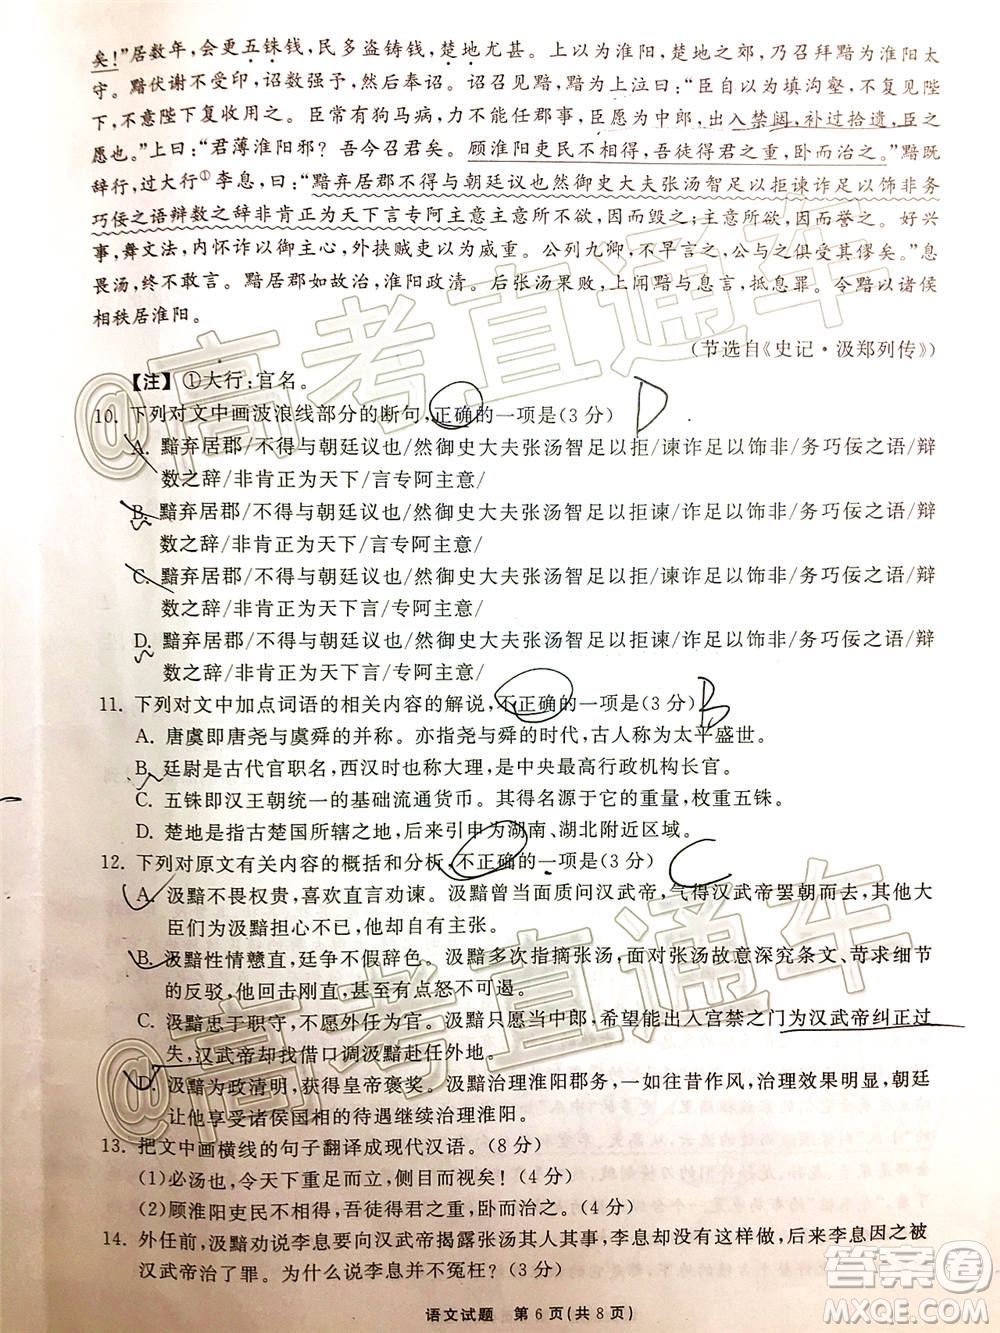 矣！”居数年，会更五铢钱，民多盗铸钱，楚地尤甚。上以淮阳，楚地之郊，乃召拜黯为淮阳太
守。黯伏谢不受印，诏数强予，然后奉诏。诏召见黯，黯为上泣曰：“臣自以为填沟壑，不复见陛
下，不意陛下复收用之。臣常有狗马病，力不能任郡事，臣愿为中郎，出入禁闼，补过拾遗，臣之
愿也。”上曰：“君薄淮阳邪？吾今召君矣。顾淮阳吏民不相得，吾徒得君之重，卧而治之。”黯既
辞行，过大行①李息，曰：“黯弃居郡不得与朝廷议也然御史大夫张汤智足以拒谏诈足以饰非务
巧佞之语辩数之辞非肯正为天下言专阿主意主意所不欲，因而毁之；主意所欲，因而誉之。好兴
事，舞文法，内怀诈以御主心，外挟贼吏以为威重。公列九卿，不早言之，公与之俱受其僇矣。”息
畏汤，终不敢言。黯居郡如故治，淮阳政清。后张汤果败，上闻黯与息言，抵息罪。令黯以诸侯
相秩居淮阳。
（节选自《史记·汲郑列传》）
【注】①大行：官名。
10. 下列对文中画波浪线部分的断句，正确的一项是（3 分） D
A. 黯弃居郡/不得与朝廷议也/然御史大夫张汤智足以拒/谏诈足以饰非/务巧佞之语/辩
数之辞/非肯正为天下/言专阿主意/
B. 黯弃居郡/不得与朝廷议也/然御史大夫张汤智足以拒谏/诈足以饰非/务巧佞之语/辩
数之辞/非肯正为天下/言专阿主意/
C. 黯弃居郡/不得与朝廷议也/然御史大夫张汤智足以拒/谏诈足以饰非/务巧佞之语/辩
数之辞/非肯正为天下言/专阿主意/
D. 黯弃居郡/不得与朝廷议也/然御史大夫张汤智足以拒谏/诈足以饰非/务巧佞之语/辩
数之辞/非肯正为天下言/专阿主意/
11. 下列对文中加点词语的相关内容的解说，不正确的一项是（3 分） B
A. 唐虞即唐尧与虞舜的并称。亦指尧与舜的时代，古人称为太平盛世。
B. 廷尉是古代官职名，西汉时也称大理，是中央最高行政机构长官。
C. 五铢即汉王朝统一的基础流通货币。其得名源于它的重量，枚重五铢。
D. 楚地是指古楚国所辖之地，后来引申为湖南、湖北附近区域。
12. 下列对原文有关内容的概括和分析，不正确的一项是（3 分） C
A. 汲黯不畏权贵，喜欢直言劝谏。汲黯曾当面质问汉武帝，气得汉武帝罢朝而去，其他大
臣们为汲黯担心不已，但却自有主张。
B. 汲黯性情戆直，廷争不假辞色。汲黯多次指摘张汤，面对张汤故意深究条文、苛求细节
的反驳，他回击刚直，甚至有点怒不可遏。
C. 汲黯忠于职守，不愿外任为官。汲黯只愿当中郎，希望能出入宫禁之门为汉武帝纠正过
失，汉武帝却找借口调汲黯赴任外地。
D. 汲黯为政清明，获得皇帝褒奖。汲黯治理淮阳郡务，一如往昔作风，政治效果明显，朝廷
让他享受诸侯国相的待遇继续治理淮阳。
13. 把文中画横线的句子翻译成现代汉语。（8 分）
（1）必汤也，令天下重足而立，侧目而视矣！（4 分）
（2）顾淮阳吏民不相得，吾徒得君之重，卧而治之。（4 分）
14. 外任前，汲黯劝说李息要向汉武帝揭露张汤其人其事，李息却没有这样做，后来李息因之被
汉武帝治了罪。为什么说李息并不冤枉？（3 分）
语文试题 第 6 页（共 8 页）
@高考直通车
@高考直通车
答案圈
MXQE.COM